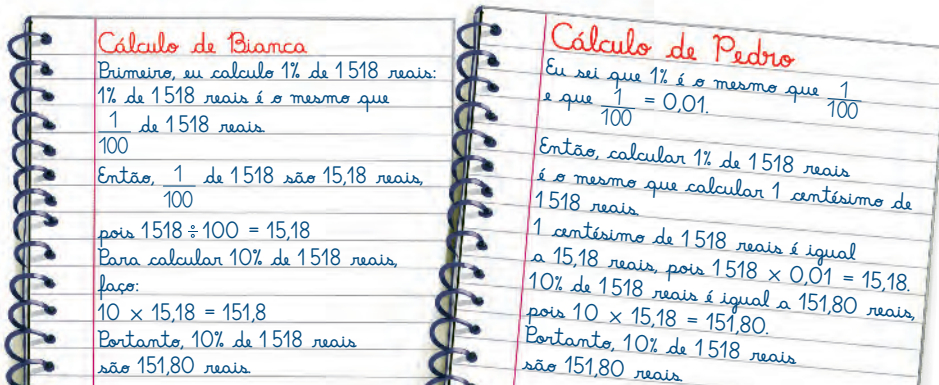 Cálculo de Bianca
Primeiro, eu calculo 1% de 1 518 reais:
1% de 1 518 reais é o mesmo que
1
100
de 1 518 reais.
Então, 1/100 de 1 518 são 15,18 reais,
pois 1518 ÷ 100 = 15,18
Para calcular 10% de 1 518 reais,
faço:
10 × 15,18 = 151,8
Portanto, 10% de 1 518 reais
são 151,80 reais.
Cálculo de Pedro
Eu sei que 1% é o mesmo que 1/100
e que 1/100 = 0,01.
Então, calcular 1% de 1 518 reais
é o mesmo que calcular 1 centésimo de
1 518 reais.
1 centésimo de 1 518 reais é igual
a 15,18 reais, pois 1 518 × 0,01 = 15,18.
10% de 1 518 reais é igual a 151,80 reais,
pois 10 × 15,18 = 151,80.
Portanto, 10% de 1 518 reais
são 151,80 reais.